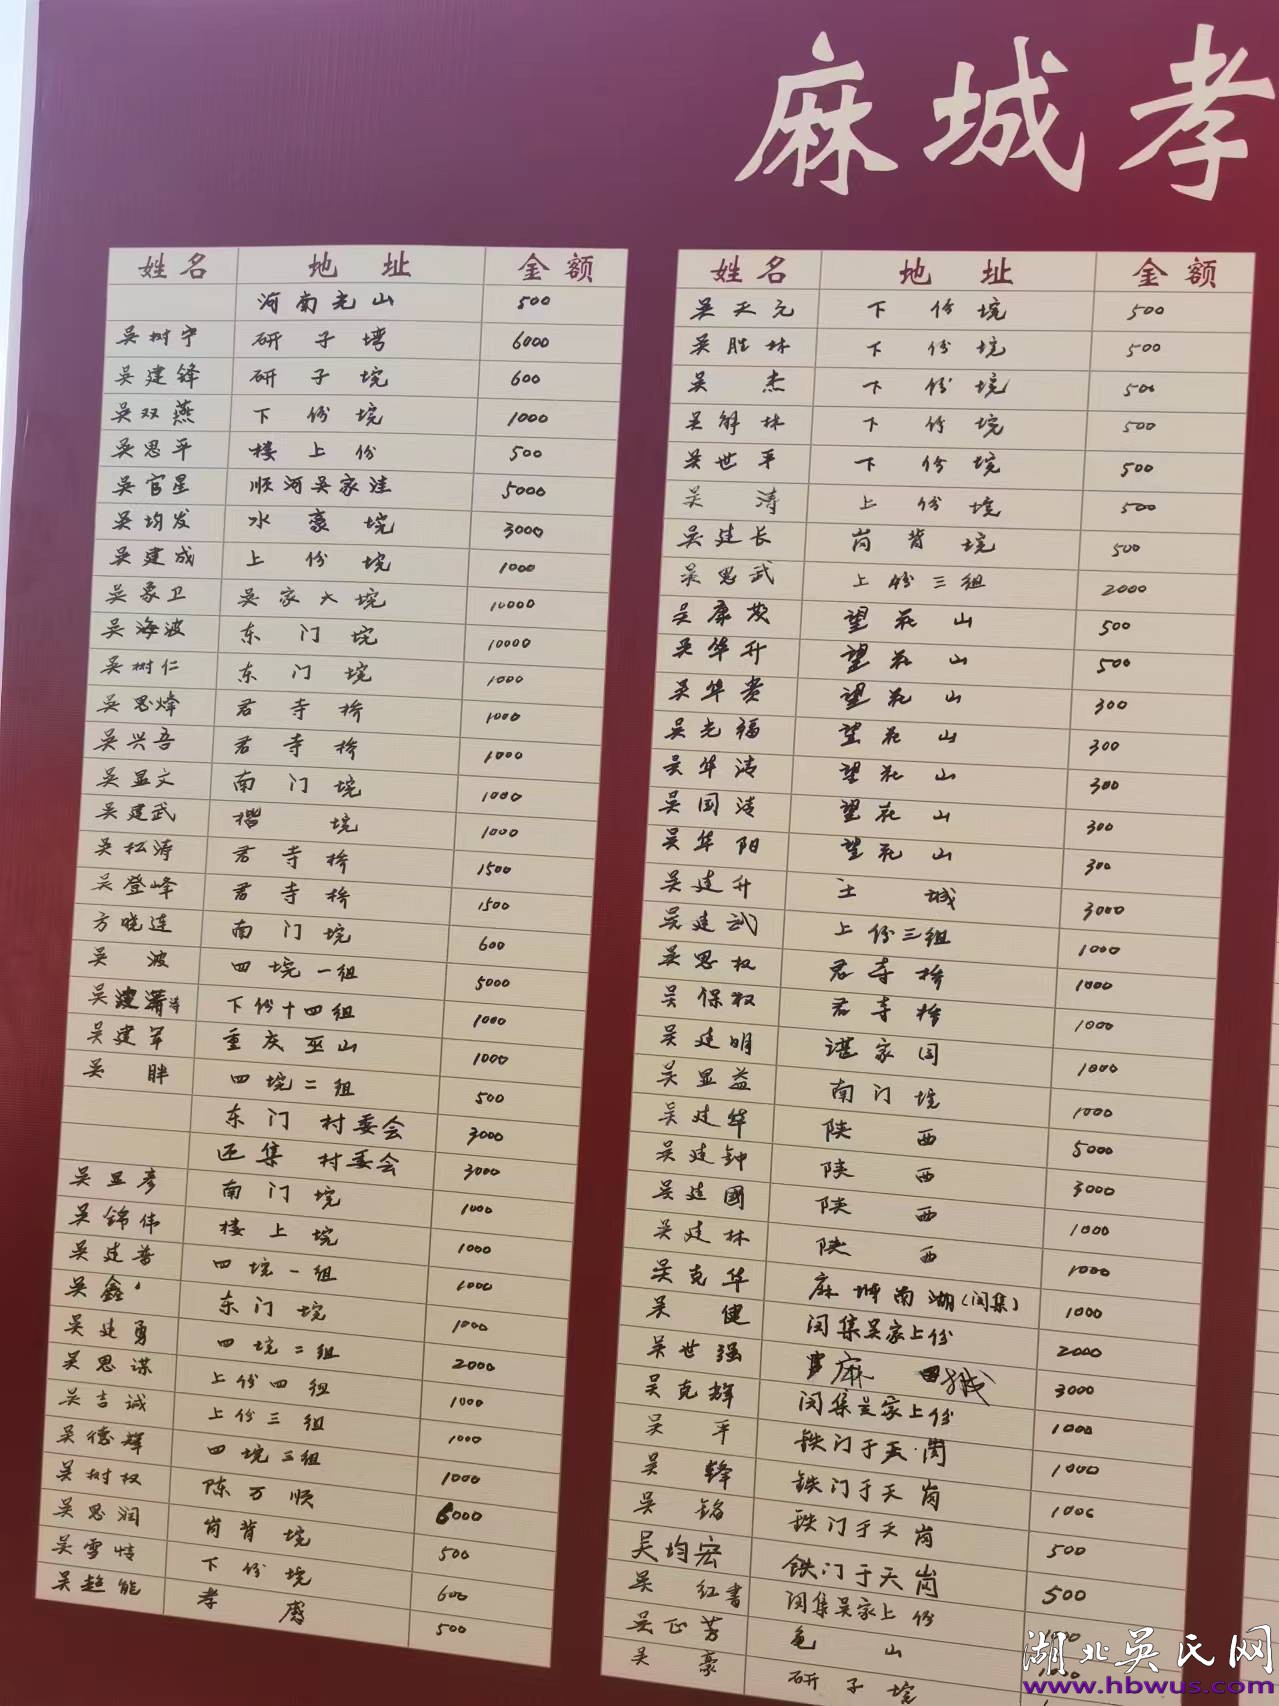 麻城孝
姓名 地址 金额
河南光山 500
吴树宁 研子塆 6000
吴建锋 研子垸 600
吴双燕 下份垸 1000
吴思平 楼上份 500
吴官星 顺河吴家洼 5000
吴均发 水寨垸 3000
吴建成 上份垸 1000
吴豪卫 吴家大垸 10000
吴海波 东门垸 10000
吴树仁 东门垸 1000
吴思烽 君寺桥 1000
吴兴吾 君寺桥 1000
吴显文 南门垸 1000
吴建武 垸 1000
吴松涛 君寺桥 1500
吴登峰 君寺桥 1500
方晓连 南门垸 600
吴波 四垸一组 5000
吴 下份十四组 1000
吴建军 重庆巫山 1000
吴胖 四垸二组 500
东门村委会 3000
集村委会 3000
吴显彦 南门垸 1000
吴锦伟 楼上垸 1000
吴建普 四垸一组 1000
吴鑫 东门垸 1000
吴建勇 四垸二组 2000
吴思谋 上份四组 1000
吴吉诚 上份三组 1000
吴德辉 四垸三组 1000
吴树权 陈万顺 6000
吴思润 岗背垸 500
吴雪情 下份垸 600
吴超能 孝感 500
姓名 地址 金额
吴天元 下份垸 500
吴胜林 下份垸 500
吴杰 下份垸 500
吴解林 下份垸 500
吴世平 下份垸 500
吴涛 上份垸 500
吴建长 岗背垸 500
吴思武 上份三组 2000
吴康 望花山 500
吴华升 望花山 500
吴华贵 望花山 300
吴光福 望花山 300
吴华清 望花山 300
吴国清 望花山 300
吴华阳 望花山 300
吴建升 王城 3000
吴建武 上份三组 1000
吴思权 君寺桥 1000
吴保权 君寺桥 1000
吴建明 谌家园 1000
吴显益 南门垸 1000
吴建华 陕西 5000
吴建钟 陕西 3000
吴建國 陕西 1000
吴建林 陕西 1000
吴克华 麻城南湖(闵集) 1000
吴健 闵集吴家上份 2000
吴世强 麻城 3000
吴克辉 闵集吴家上份 1000
吴平 铁门于天岗 1000
吴锋 铁门于天岗 1000
吴铭 铁门于天岗 500
吴均宏 铁门于天岗 500
吴红書 闵集吴家上份
吴正芳 龟山
吴豪 研子垸
湖北吴氏网
www.hbwus.com